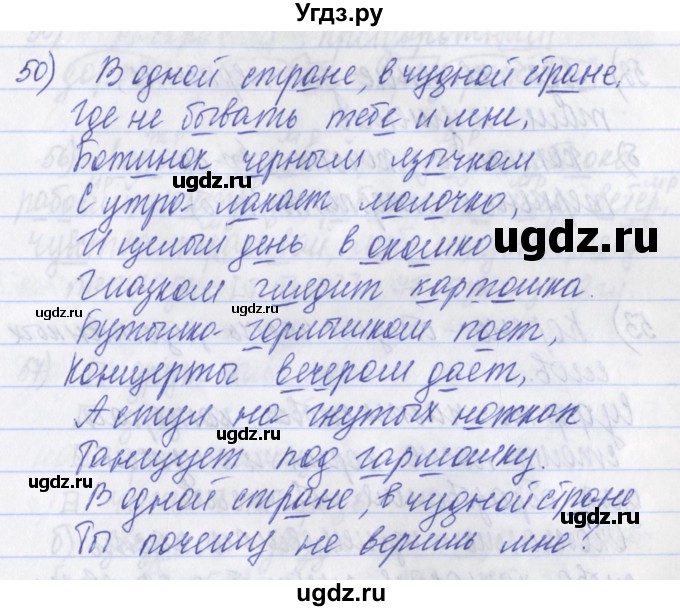 Угдз.ру
50) В одной стране, в чудной стране,
Где не бывать тебе и мне,
Ботинок черным язычком
ugdz.ru
ugdz.ru
С утра лакает молочко,
ugdz.ru
И целый день в окошко
Глазком глядит картошка.
ugdz.ru
ugdz.ru
Бутылка горлышком поёт,
Концерты вечером даёт,
А стул на гнутых ножках
ugdz.ru
Танцует под гармошку.
В одной стране, в чудной стране
ugdz.ru
Ты почему не веришь мне?
ugdz.ru